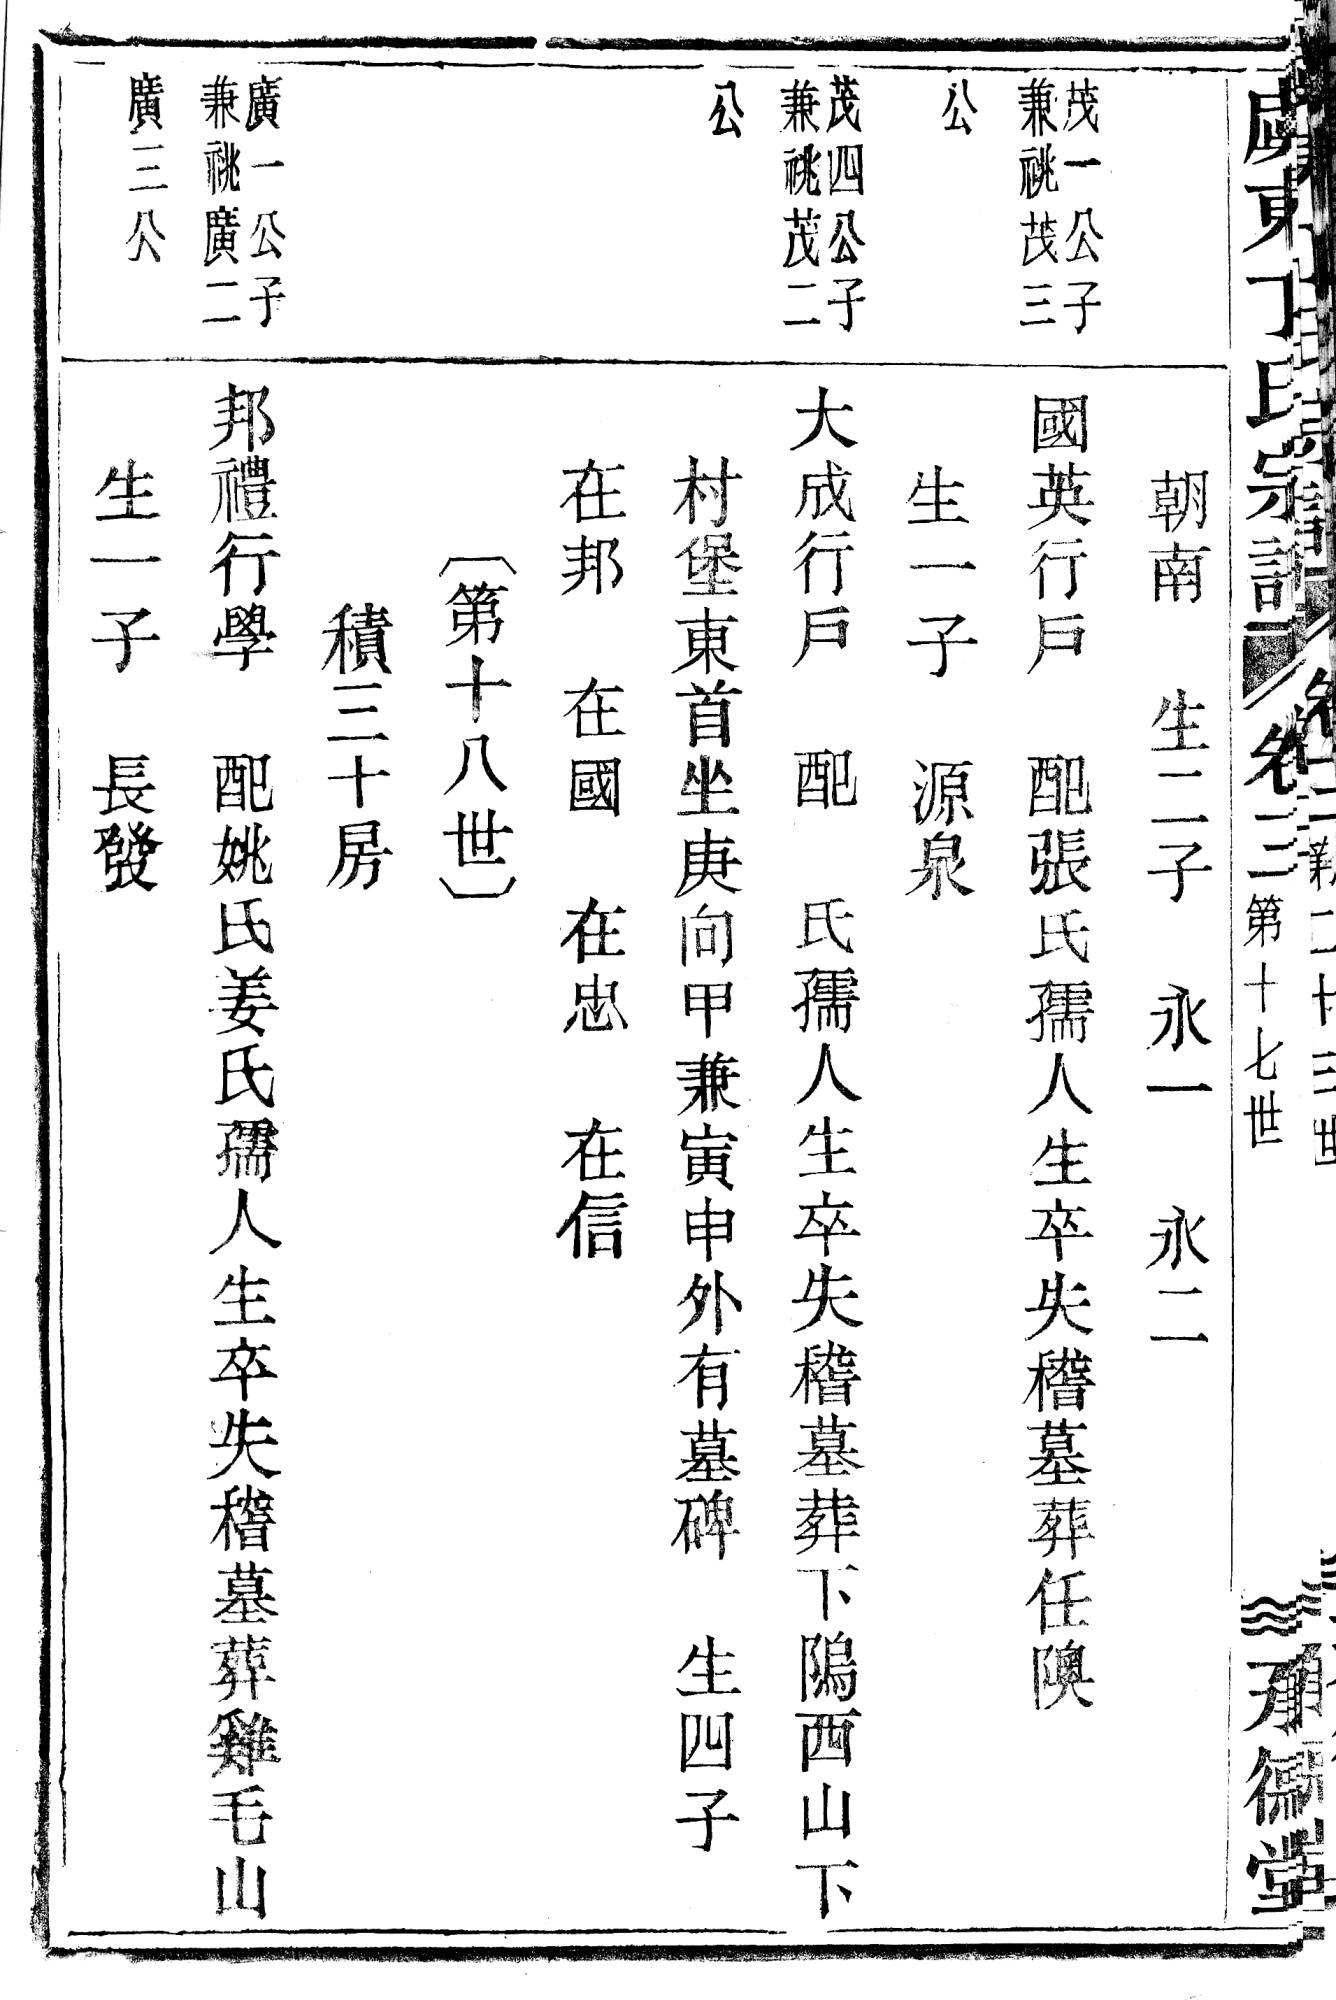 虞東丁氏宗譜 卷三 第十七世
朝南 生二子 永一 永二
茂一公子
兼祧茂三
公
國英行戶 配張氏孺人生卒失稽墓葬任隩
生一子 源泉
茂四公子
兼祧茂二
公
大成行戶 配 氏孺人生卒失稽墓葬下隝西山下
村堡東首坐庚向甲兼寅申外有墓碑 生四子
在邦 在國 在忠 在信
〔第十八世〕
積三十房
廣一公子
兼祧廣二
廣三公
邦禮行學 配姚氏姜氏孺人生卒失稽墓葬雞毛山
生一子 長發